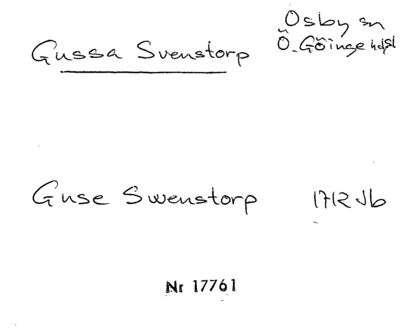 Osby sn
Gussa Svenstorp
Ö. Göinge hd
Gnse Swenstorp 1712 Jb
Nr 17761